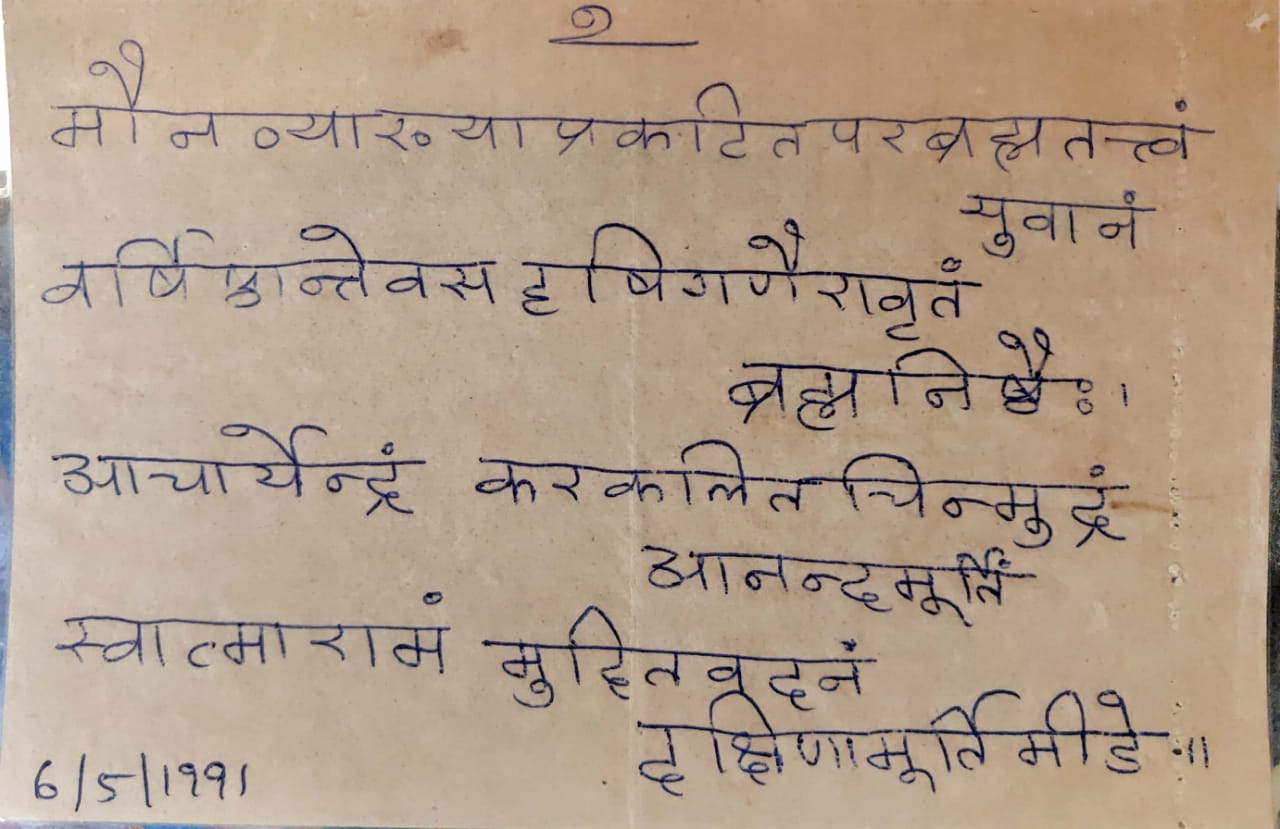 २
मौनव्याख्याप्रकटितपरब्रह्मतत्त्वं
युवानं
वर्षिष्ठान्तेवसदृषिगणैरावृतं
ब्रह्मनिष्ठैः।
आचार्येन्द्रं करकलितचिन्मुद्रं
आनन्दमूर्तिं
स्वात्मारामं मुदितवदनं
दक्षिणामूर्तिमीडे ॥
6/5/1991